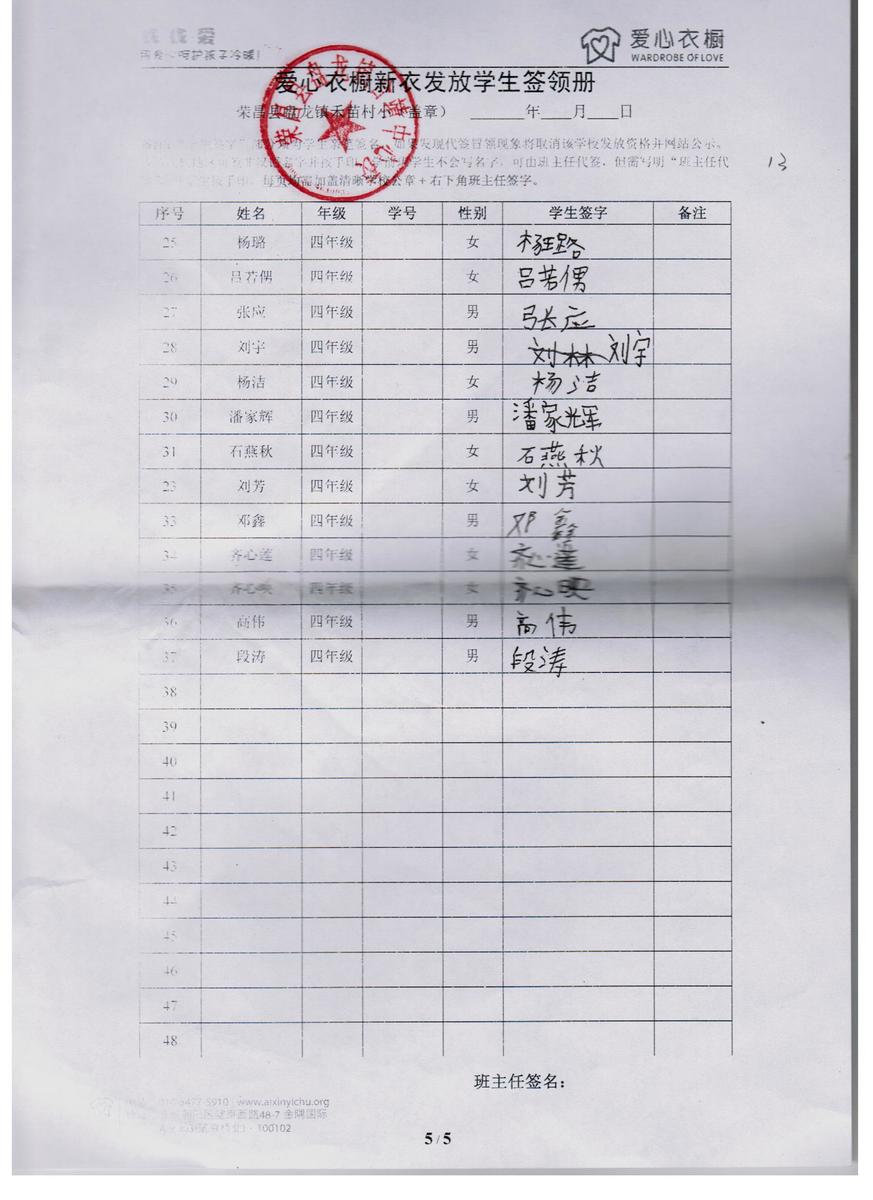 爱心衣橱
WARDROBE OF LOVE
爱心衣橱新衣发放学生签领册
荣昌县盘龙镇禾苗村小（盖章） 年 月 日
学生亲笔签名，如果发现代签冒领现象将取消该学校发放资格并网站公示。
学生不会写名字，可由班主任代签，但需写明“班主任代
每页均需加盖清晰学校公章+右下角班主任签字。
13
序号 姓名 年级 学号 性别 学生签字 备注
25 杨璐 四年级 女 杨璐
26 吕若偶 四年级 女 吕若偶
27 张应 四年级 男 张应
28 刘宇 四年级 男 刘林 刘宇
29 杨洁 四年级 女 杨洁
30 潘家辉 四年级 男 潘家辉
31 石燕秋 四年级 女 石燕秋
23 刘芳 四年级 女 刘芳
33 邓鑫 四年级 男 邓鑫
34 齐心莲 四年级 女 齐心莲
35 齐心映 四年级 女 齐心映
36 高伟 四年级 男 高伟
37 段涛 四年级 男 段涛
38
39
40
41
42
43
44
45
46
47
48
班主任签名：
5910 | www.aixinyichu.org
48-7 金隅国际
100102
5 / 5